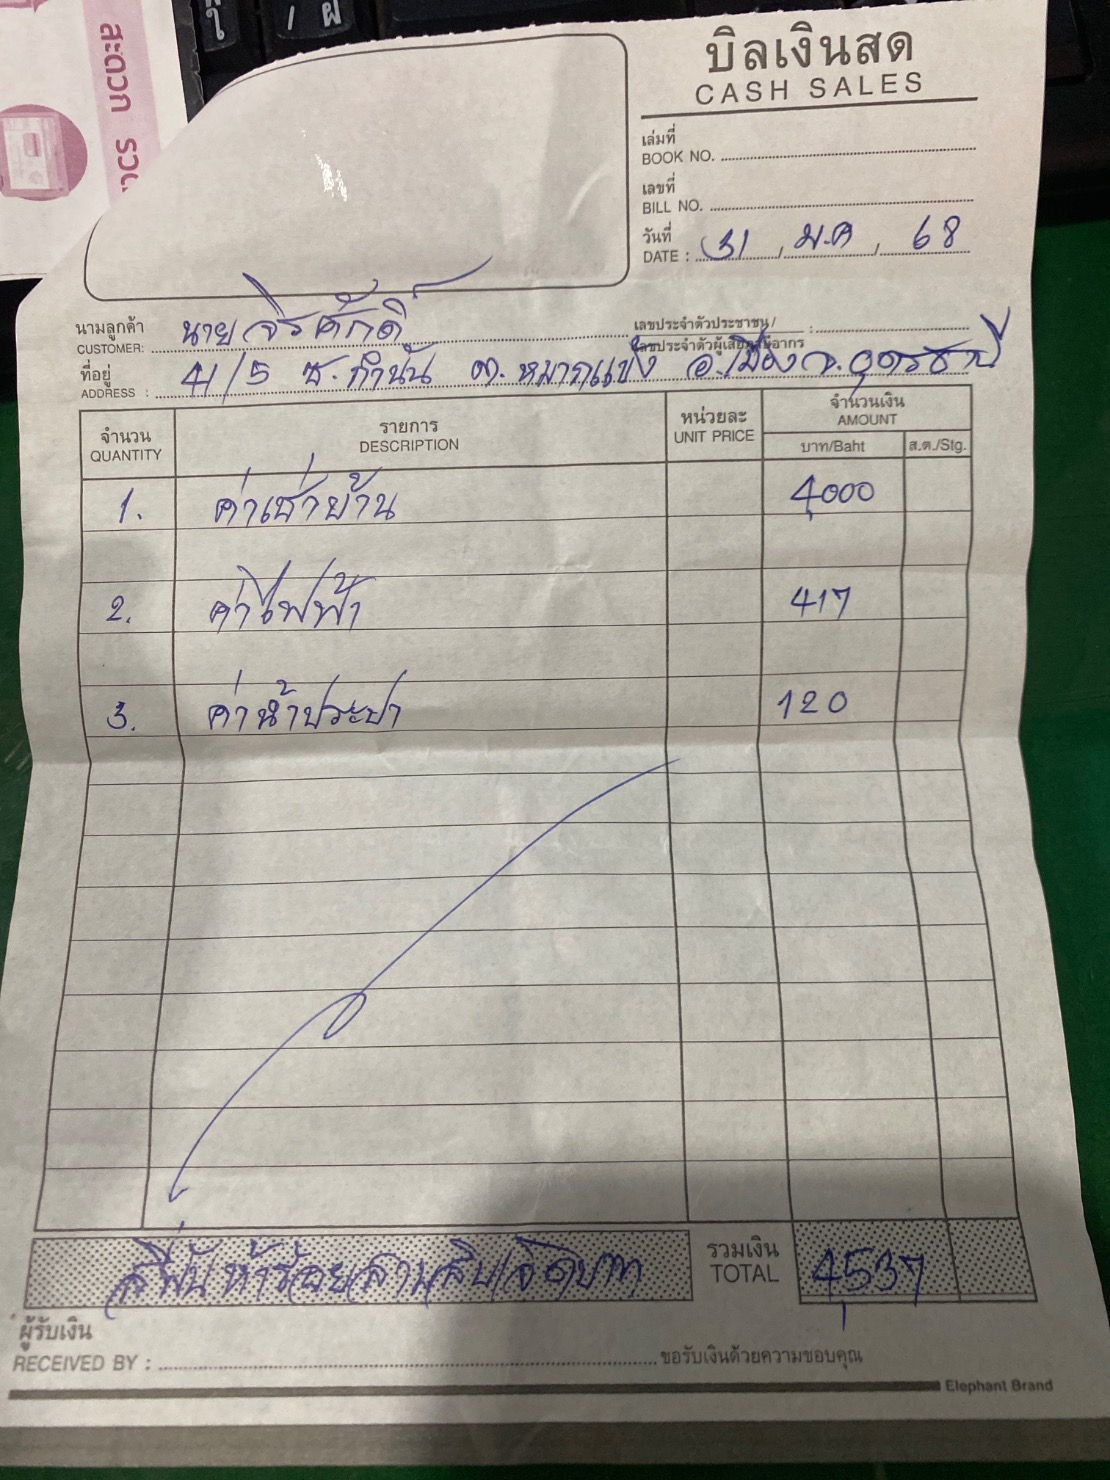 สะดวก รวด
บิลเงินสด
CASH SALES
เล่มที่
BOOK NO.
เลขที่
BILL NO.
วันที่
DATE : 31 / ม.ค / 68
นามลูกค้า
CUSTOMER: นาย จิรศักดิ์
เลขประจำตัวประชาชน/ :
เลขประจำตัวผู้เสียภาษีอากร
ที่อยู่
ADDRESS : 41/5 ซ.กำนัน ต.หมากแข้ง อ.เมือง จ.อุดรธานี
จำนวน รายการ หน่วยละ จำนวนเงิน
QUANTITY DESCRIPTION UNIT PRICE AMOUNT
บาท/Baht ส.ต./Stg.
1. ค่าเช่าบ้าน 4,000
2. ค่าไฟฟ้า 417
3. ค่าน้ำประปา 120
สี่พันห้าร้อยสามสิบเจ็ดบาท รวมเงิน 4,537
TOTAL
ผู้รับเงิน
RECEIVED BY : ขอรับเงินด้วยความขอบคุณ
Elephant Brand